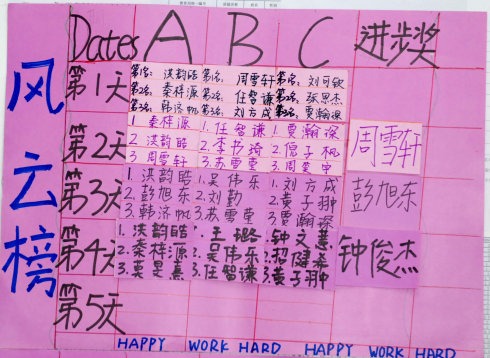 风云榜
Dates A B C 进步奖
第1天
第1名: 洪韵皓 第1名: 周雪轩 第1名: 刘可钦
第2名: 秦梓源 第2名: 任智谦 第2名: 张恩杰
第3名: 韩济帆 第3名: 刘方成 第3名: 贾瀚琛
第2天
1 秦梓源 1. 任智谦 1. 贾瀚琛
2. 洪韵皓 2. 李书琦 2. 倪子枫
3. 周雪轩 3. 苏雯萱 3. 周
周雪轩
第3天
1. 洪韵皓 1. 吴伟乐 1. 刘方成
2. 彭旭东 2. 刘勤 2. 黄子翀
3. 韩济帆 3. 苏雯萱 3. 贾瀚琛
彭旭东
第4天
1. 洪韵皓 1. 王璐 1. 钟文蕙
2. 秦梓源 2. 吴伟乐 2. 招健希
3. 莫昱熹 3. 任智谦 3. 黄子翀
钟俊杰
第5天
HAPPY WORK HARD HAPPY WORK HARD